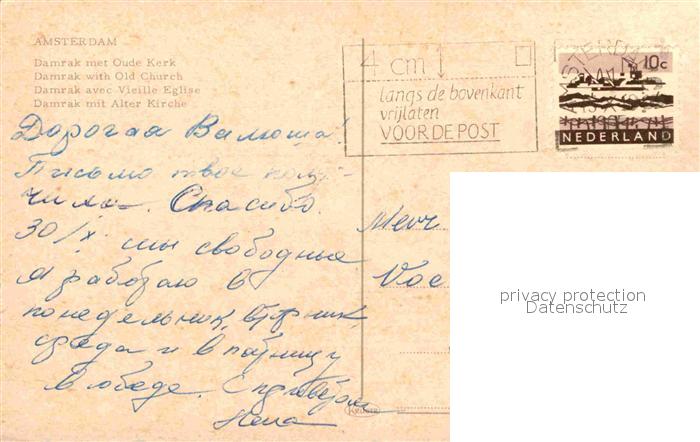 AMSTERDAM
Damrak met Oude Kerk
Damrak with Old Church
Damrak avec Vieille Eglise
Damrak mit Alter Kirche
4 cm
langs de bovenkant
vrijlaten
VOOR DE POST
10c
NEDERLAND
Дорогая Валюша!
Письмо твое полу-
чила. Спасибо.
30/X мы свободные
Я работаю в
понедельник, вторник,
среда и в пятницу
в обеде. С приветом
Нела
Mevr
Voe
KRÜGER
privacy protection
Datenschutz